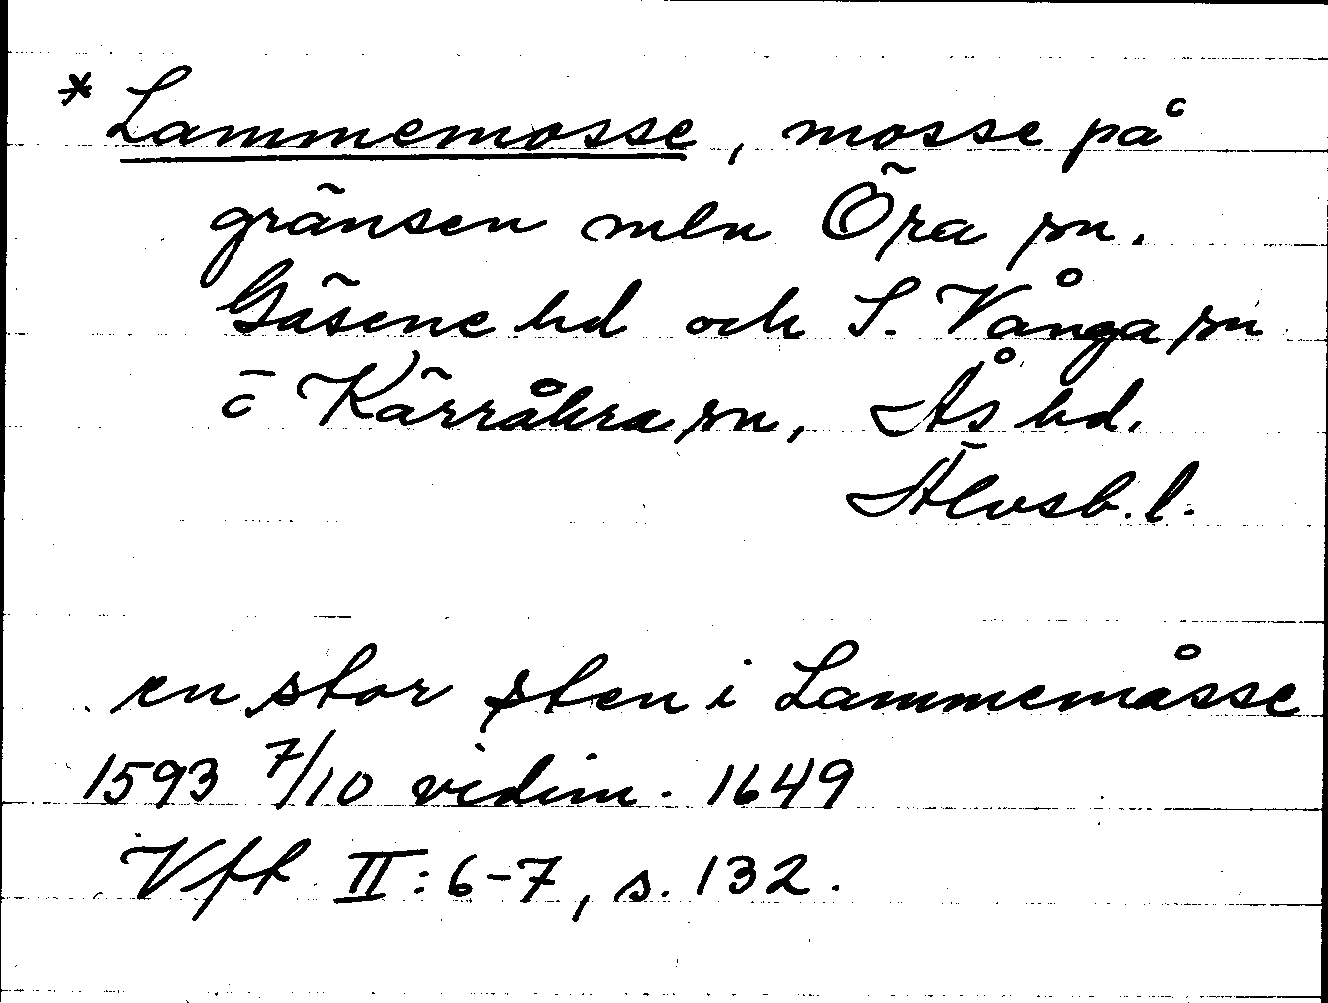 * Lammemosse, mosse på
gränsen mln Öra sn.
Gäsene hd och S. Vånga sn
o Kärråkra sn, Ås hd.
Älvsb. l.
en stor sten i Lammemåsse
1593 7/10 vidim. 1649
Vft II: 6-7, s. 132.